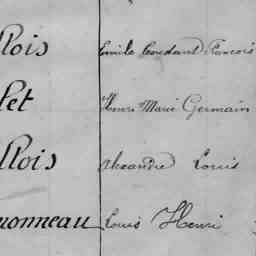 llois Emile Constant Francois
let Henri Marie Germain
llois Alexandre Louis
nonneau Louis Henri